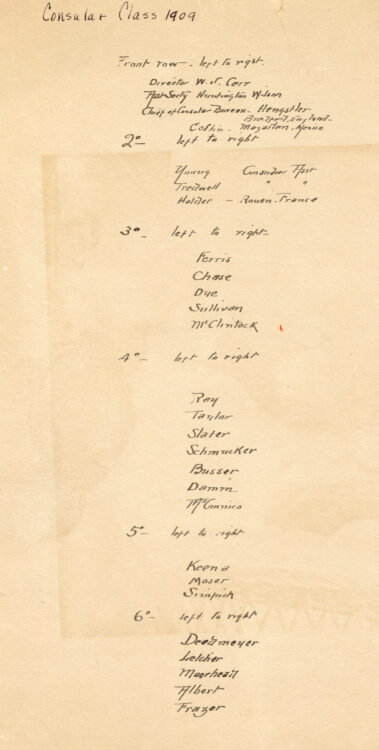 Consular Class 1909
Front row - left to right.
Director W. J. Carr
Asst Secty Huntington Wilson
Chief of Consular Bureau - Hengstler
Bradford, England -
Coffin - Mazatlan - Mexico
2º left to right
Young Consular Asst
Tredwell " "
Holder - Rouen - France
3º - left to right -
Ferris
Chase
Dye
Sullivan
McClintock
4º - left to right
Ray
Taylor
Slater
Schmucker
Busser
Damm
5º - left to right
Keena
Moser
Simpich
6º - left to right
Deedmeyer
Letcher
Moorhead
Albert
Frazer